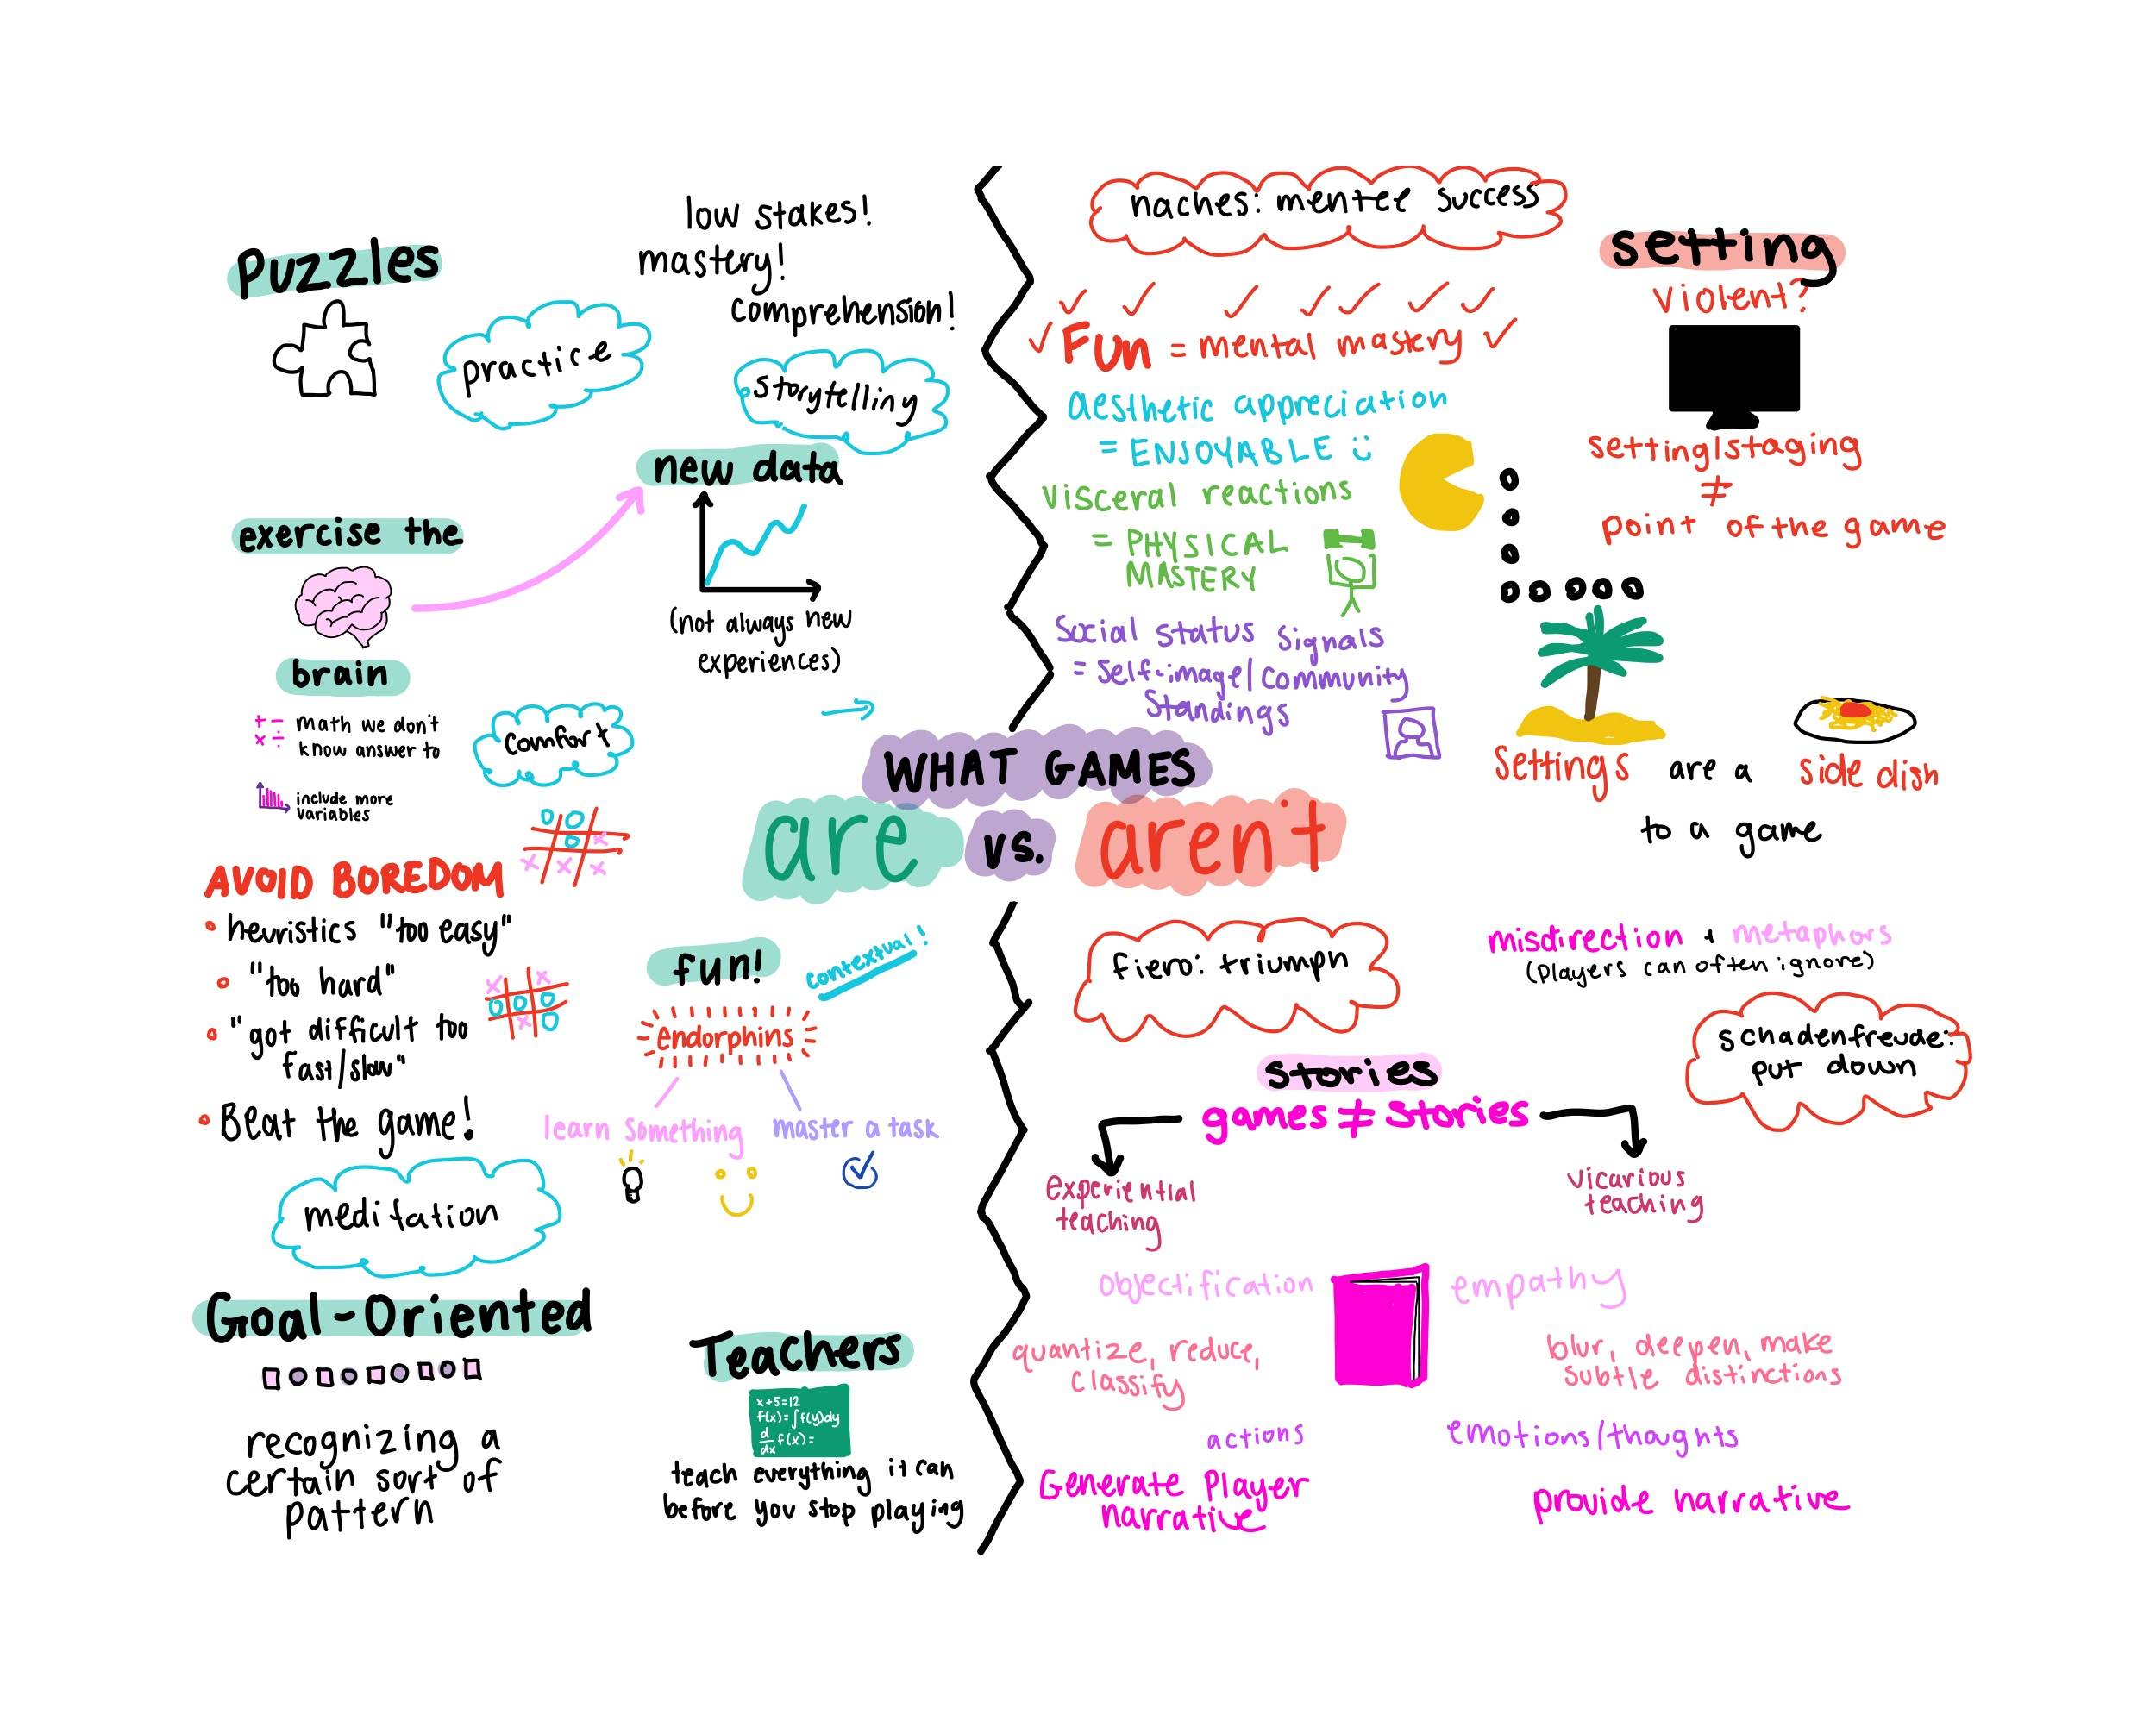 Puzzles
low stakes!
mastery!
comprehension!
practice
storytelling
new data
(not always new
experiences)
exercise the
brain
+ - × ÷
math we don't
know answer to
include more
variables
comfort
AVOID BOREDOM
• heuristics "too easy"
• "too hard"
• "got difficult too
fast/slow"
• Beat the game!
meditation
Goal-Oriented
recognizing a
certain sort of
pattern
fun!
contextual!
endorphins
learn something
master a task
Teachers
x+5=12
f(x)=∫f(y)dy
d/dx f(x)=
teach everything it can
before you stop playing
WHAT GAMES
are vs. aren't
naches: mentee success
Fun = mental mastery
aesthetic appreciation
= ENJOYABLE :)
visceral reactions
= PHYSICAL
MASTERY
Social status signals
= self-image/community
standings
setting
violent?
setting/staging
≠
point of the game
Settings are a side dish
to a game
fiero: triumph
misdirection + metaphors
(players can often ignore)
schadenfreude:
put down
stories
games ≠ stories
experiential
teaching
vicarious
teaching
objectification
empathy
quantize, reduce,
classify
blur, deepen, make
subtle distinctions
actions
emotions/thoughts
Generate Player
narrative
provide narrative